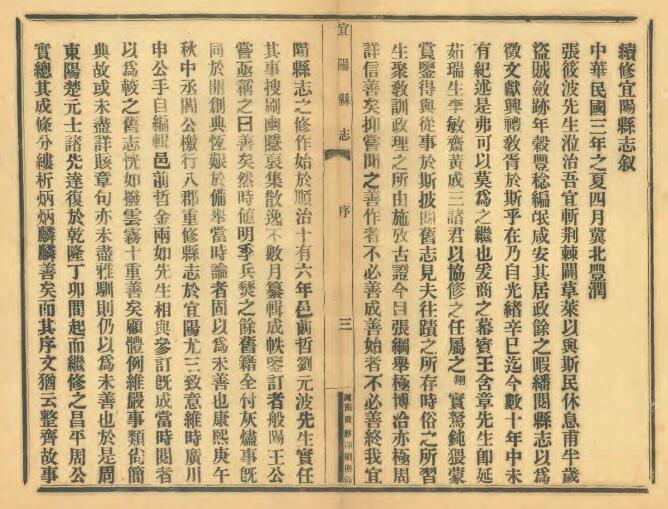 續修宜陽縣志敘
中華民國三年之夏四月冀北豐潤
張筱波先生涖治吾宜斬荊棘闢草萊以與斯民休息甫半歲
盜賊斂跡年穀豐稔編氓咸安其居政餘之暇繙閱縣志以為
徵文獻興禮敎胥於斯乎在乃自光緒辛巳迄今數十年中未
有紀述是弗可以莫為之繼也爰商之幕賓王含章先生卽延
茹瑞生李敏齋黃成三諸君以協修之任屬之翎實駑鈍猥蒙
賞鑒得與從事於斯披閱舊志見夫往蹟之所存時俗之所習
生聚敎訓政理之所由施攷古證今目張綱舉極博洽亦極周
詳信善矣抑嘗聞之善作者不必善成善始者不必善終我宜
宜陽縣志
序
三
陽縣志之修作始於順治十有六年邑前哲劉元波先生實任
其事搜刷幽隱裒集散逸不數月纂輯成帙鑒訂者般陽王公
嘗亟稱之曰善矣然時値明季兵燹之餘舊籍全付灰燼事旣
同於開創典恆艱於備舉當時論者固以為未善也康熙庚午
秋中丞閻公檄行八郡重修縣志於宜陽尤三致意維時廣川
申公手自編輯邑前哲金兩如先生相與參訂旣成當時閱者
以為較之舊志恍如撥雲霧十重善矣顧體例維嚴事類尙簡
典故或未盡詳賅章句亦未盡雅馴則仍以為未善也於是周
東陽楚元士諸先達復於乾隆丁卯間起而繼修之昌平周公
實總其成條分縷析炳炳麟麟善矣而其序文猶云整齊故事